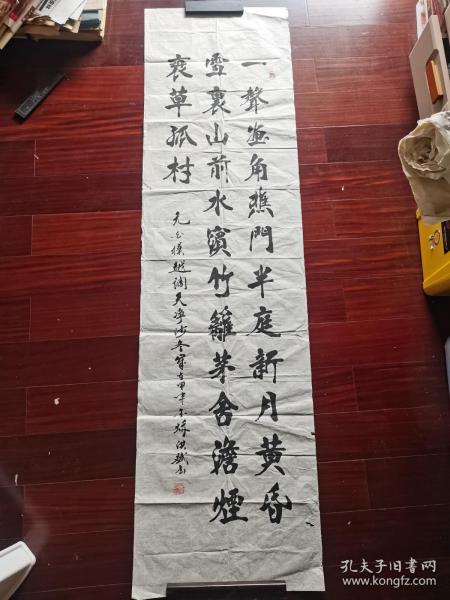 一聲畫角譙門半庭新月黃昏
雪裏山前水濱竹籬茅舍澹煙
衰草孤村
元白樸越調天淨沙冬
孔夫子旧书网
www.kongfz.com